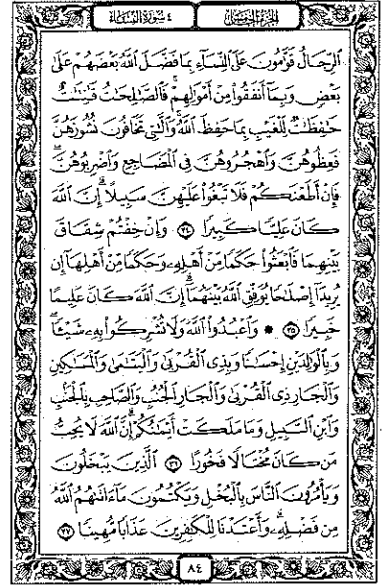 الجزء الخامس ٤ سورة النساء
الرِّجَالُ قَوَّامُونَ عَلَى النِّسَاءِ بِمَا فَضَّلَ اللَّهُ بَعْضَهُمْ عَلَىٰ
بَعْضٍ وَبِمَا أَنفَقُوا مِنْ أَمْوَالِهِمْ فَالصَّالِحَاتُ قَانِتَاتٌ
حَافِظَاتٌ لِّلْغَيْبِ بِمَا حَفِظَ اللَّهُ وَاللَّاتِي تَخَافُونَ نُشُوزَهُنَّ
فَعِظُوهُنَّ وَاهْجُرُوهُنَّ فِي الْمَضَاجِعِ وَاضْرِبُوهُنَّ
فَإِنْ أَطَعْنَكُمْ فَلَا تَبْغُوا عَلَيْهِنَّ سَبِيلًا إِنَّ اللَّهَ
كَانَ عَلِيًّا كَبِيرًا ٣٤ وَإِنْ خِفْتُمْ شِقَاقَ
بَيْنِهِمَا فَابْعَثُوا حَكَمًا مِّنْ أَهْلِهِ وَحَكَمًا مِّنْ أَهْلِهَا إِن
يُرِيدَا إِصْلَاحًا يُوَفِّقِ اللَّهُ بَيْنَهُمَا إِنَّ اللَّهَ كَانَ عَلِيمًا
خَبِيرًا ٣٥ وَاعْبُدُوا اللَّهَ وَلَا تُشْرِكُوا بِهِ شَيْئًا
وَبِالْوَالِدَيْنِ إِحْسَانًا وَبِذِي الْقُرْبَىٰ وَالْيَتَامَىٰ وَالْمَسَاكِينِ
وَالْجَارِ ذِي الْقُرْبَىٰ وَالْجَارِ الْجُنُبِ وَالصَّاحِبِ بِالْجَنبِ
وَابْنِ السَّبِيلِ وَمَا مَلَكَتْ أَيْمَانُكُمْ إِنَّ اللَّهَ لَا يُحِبُّ
مَن كَانَ مُخْتَالًا فَخُورًا ٣٦ الَّذِينَ يَبْخَلُونَ
وَيَأْمُرُونَ النَّاسَ بِالْبُخْلِ وَيَكْتُمُونَ مَا آتَاهُمُ اللَّهُ
مِن فَضْلِهِ وَأَعْتَدْنَا لِلْكَافِرِينَ عَذَابًا مُّهِينًا ٣٧
٨٤